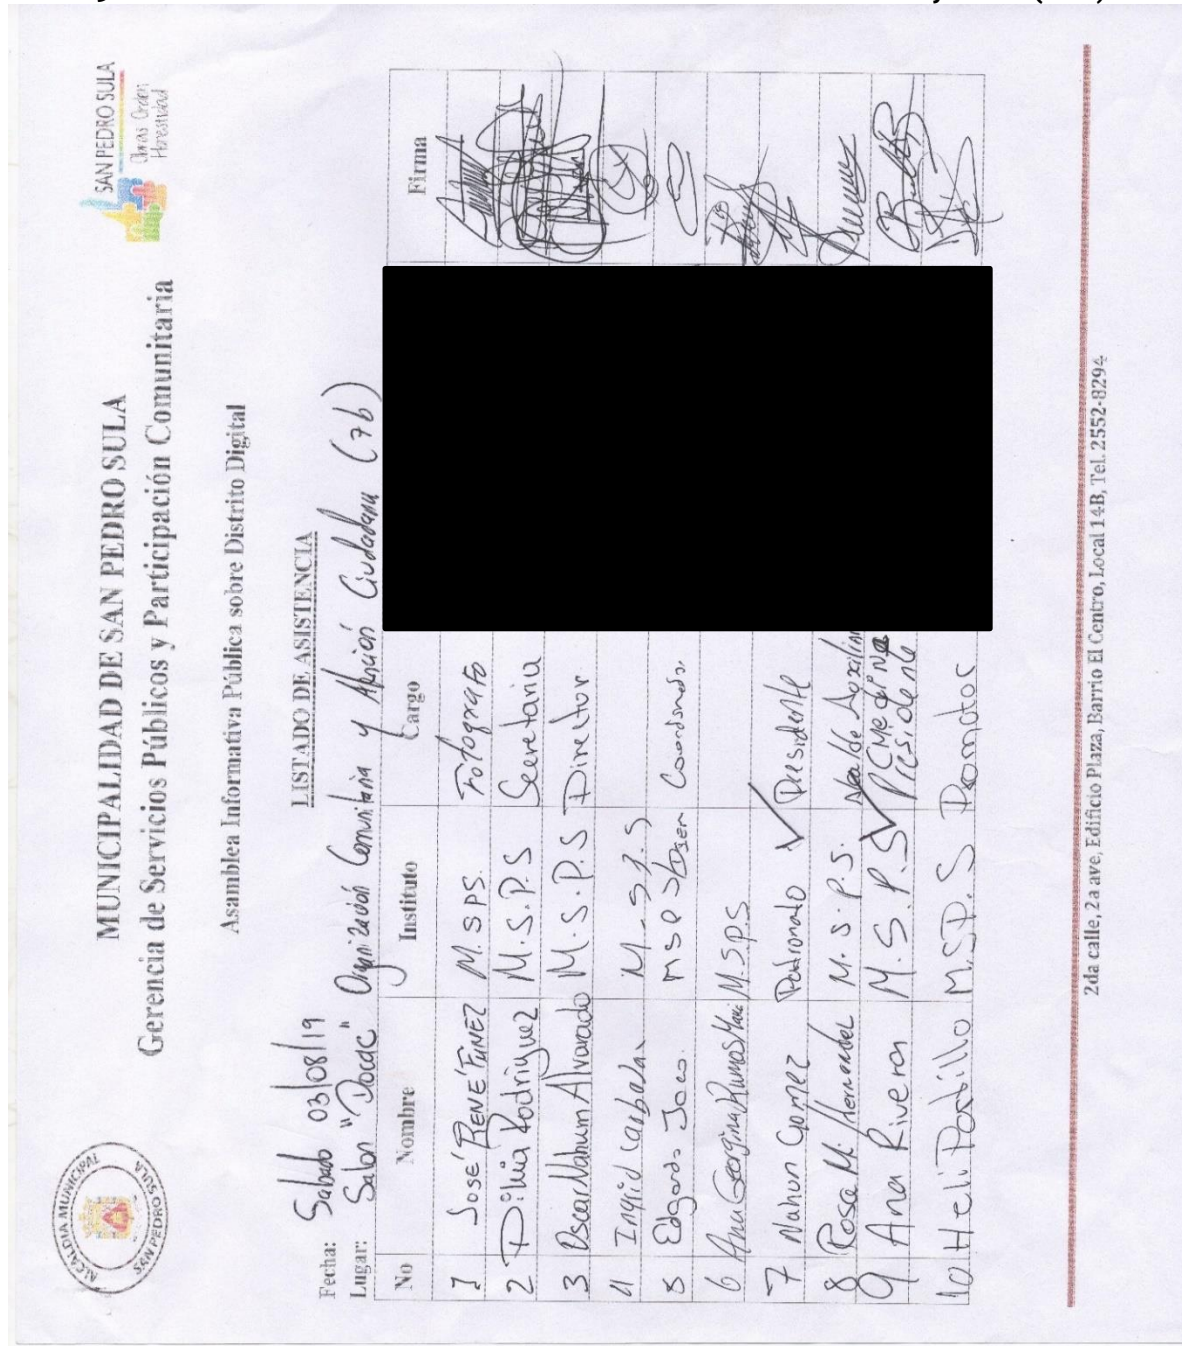 ALCALDIA MUNICIPAL
SAN PEDRO SULA
MUNICIPALIDAD DE SAN PEDRO SULA
Gerencia de Servicios Públicos y Participación Comunitaria
SAN PEDRO SULA
Obras Orden
Honestidad
Asamblea Informativa Pública sobre Distrito Digital
LISTADO DE ASISTENCIA
Fecha: Sabado 03/08/19
Lugar: Salon "Docdc" Organización Comunitaria y Atención Ciudadana (7b)
No Nombre Instituto Cargo Firma
1 José RENÉ FUNEZ M. SPS. Fotografo
2 Dilia Rodriguez M.S.P.S Secretaria
3 Oscar Nahum Alvarado M.S.P.S Director
4 Ingrid M-S.P.S
5 Edgardo Jaco. MSPS Coordinador
6 Ana Georgina Ramos M.S.P.S
7 Nahun Gomez Patronato ✓ Presidente
8 Rosa M. Hernandez M.S.P.S. Alcalde Auxiliar
9 Ana Rivera M.S.P.S ✓ Presidente
10 Heli Portillo M.S.P.S Promotor
2da calle, 2a ave, Edificio Plaza, Barrio El Centro, Local 14B, Tel. 2552-8294